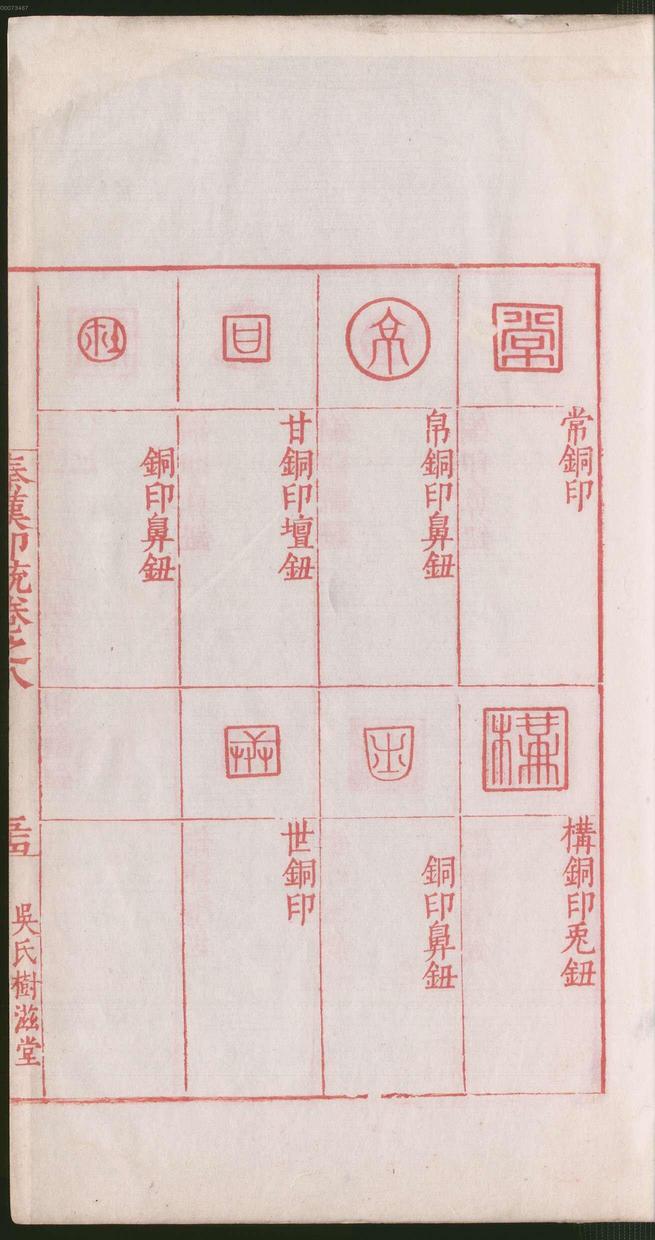 常銅印
帛銅印鼻鈕
甘銅印壇鈕
銅印鼻鈕
構銅印兎鈕
銅印鼻鈕
世銅印
秦漢印統卷之八
吳氏樹滋堂
00073467